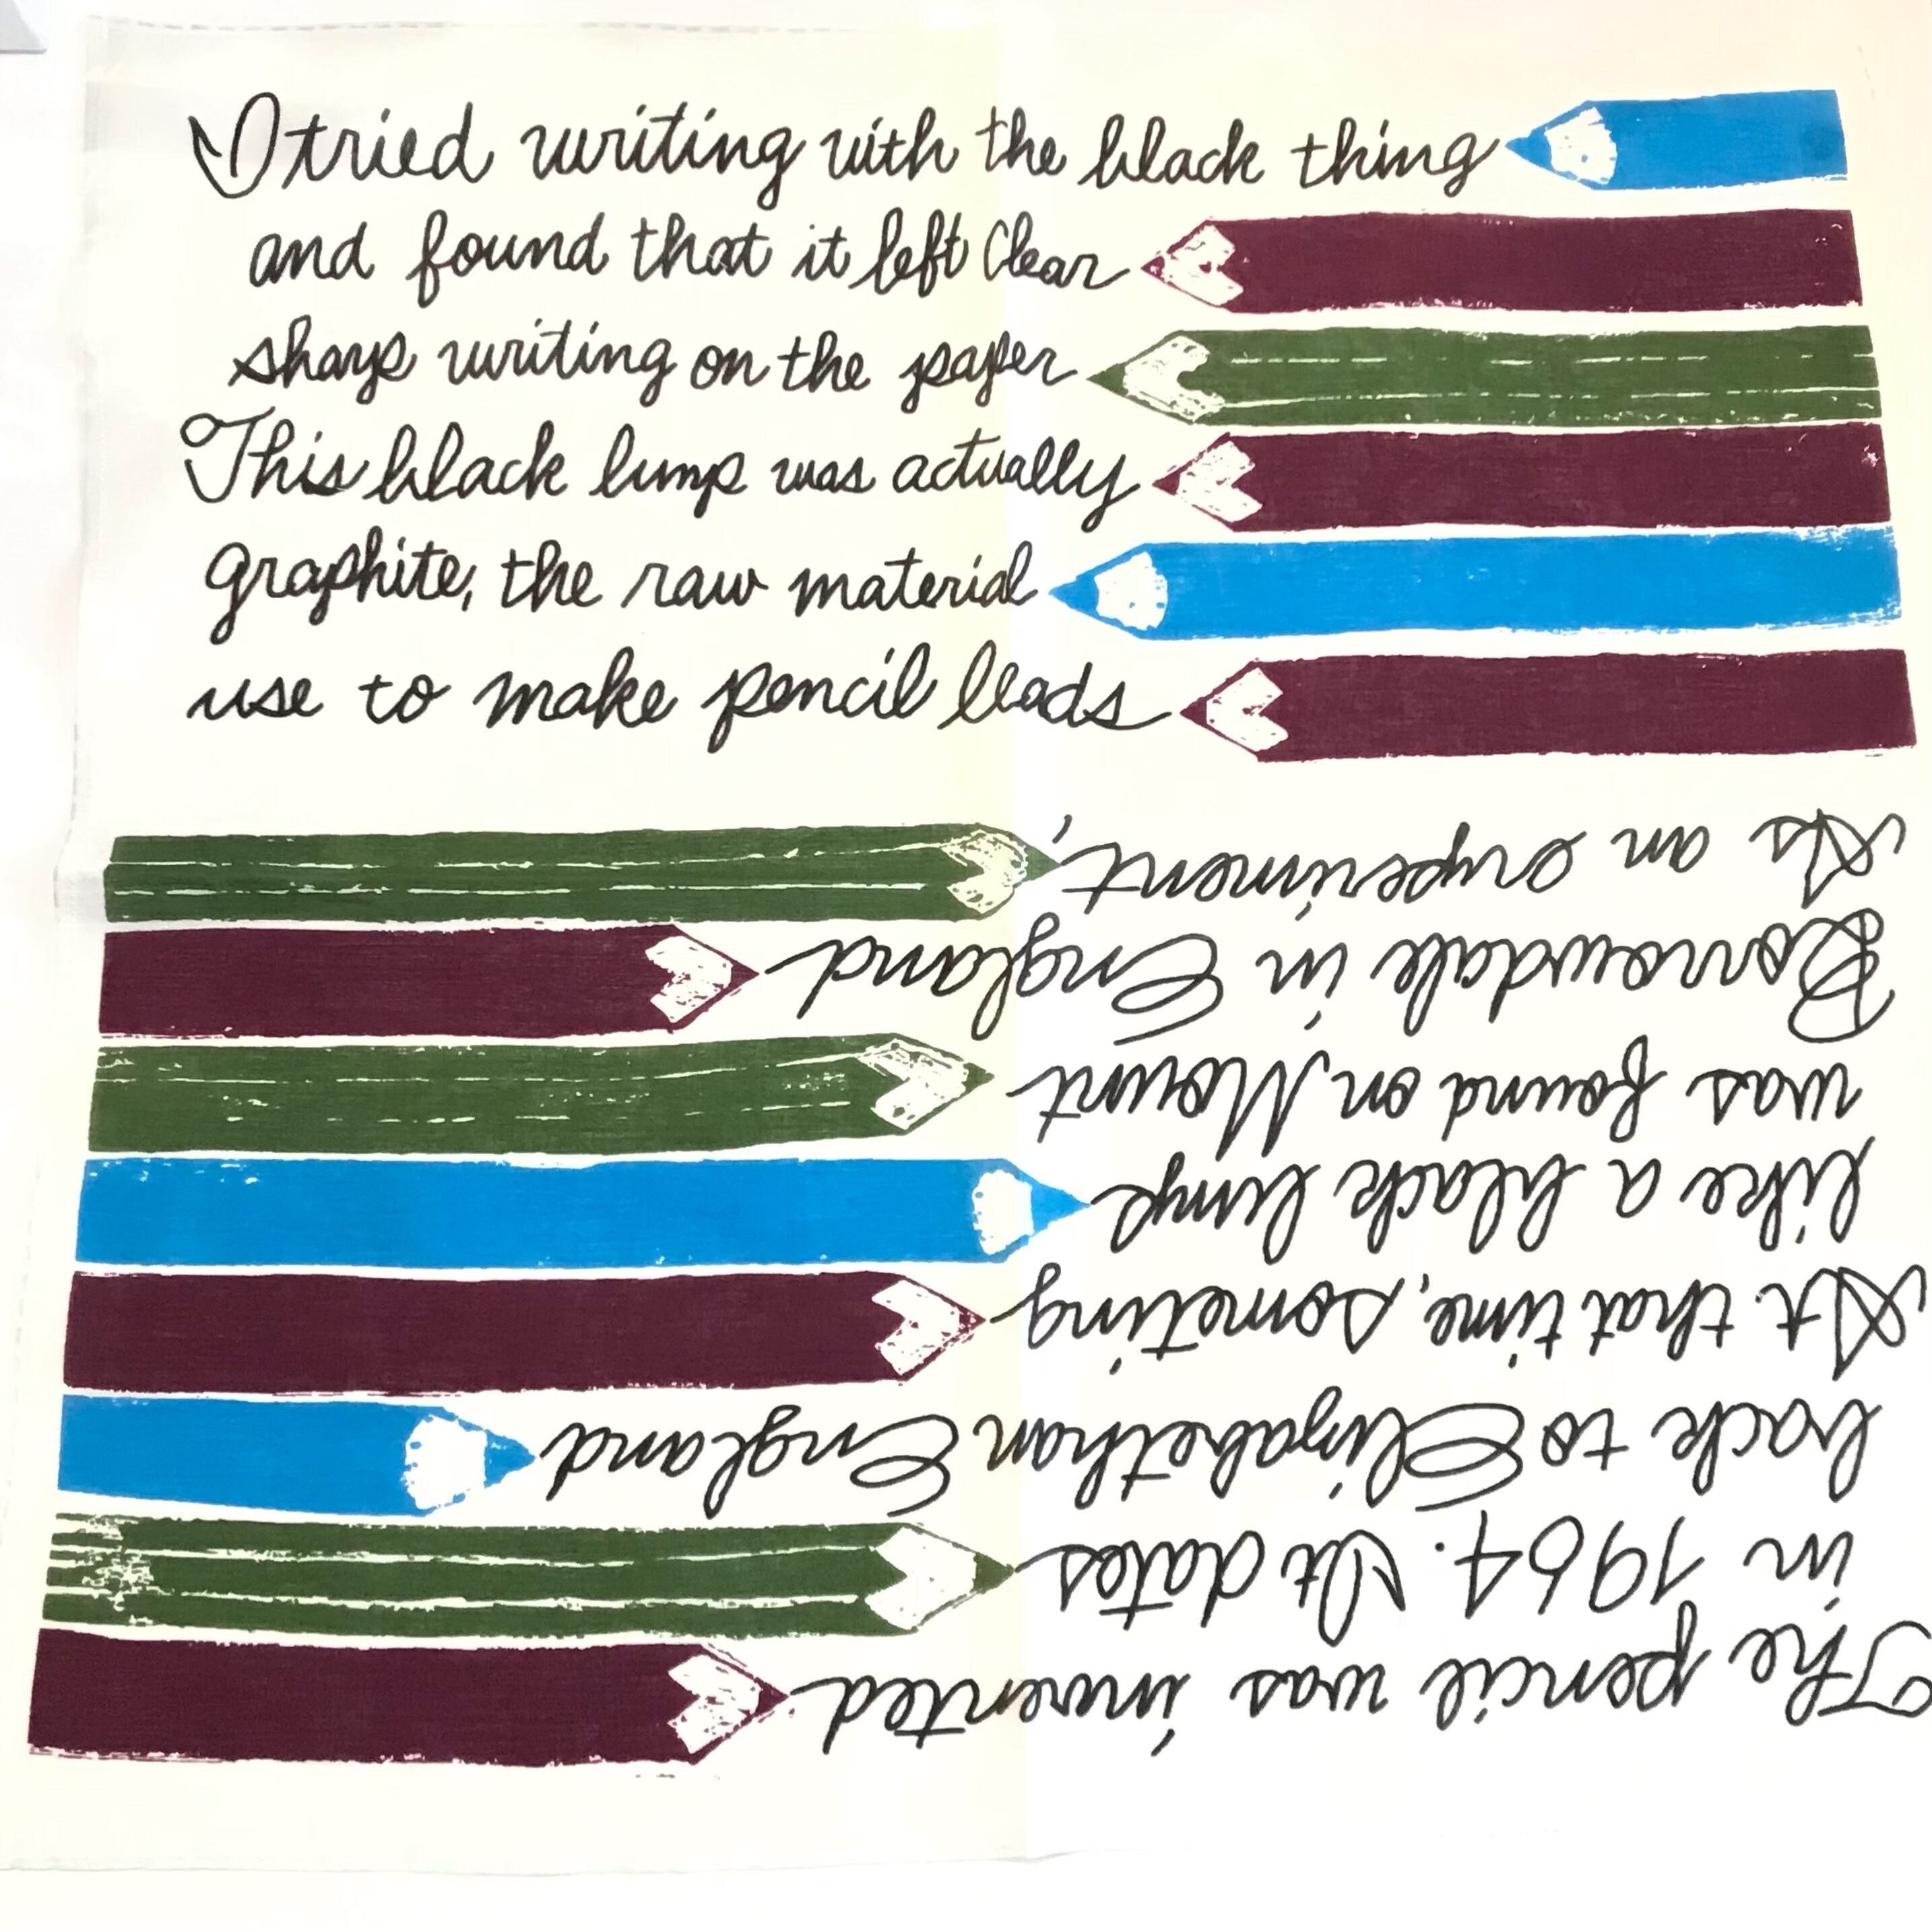 The pencil was invented
in 1964. It dates
back to Elizabethan England
At that time, someting
like a black lump
was found on Mount
Borrowdale in England
As an experiment,
I tried writing with the black thing
and found that it left Clear
sharp writing on the paper
This black lump was actually
graphite, the raw material
use to make pencil leads